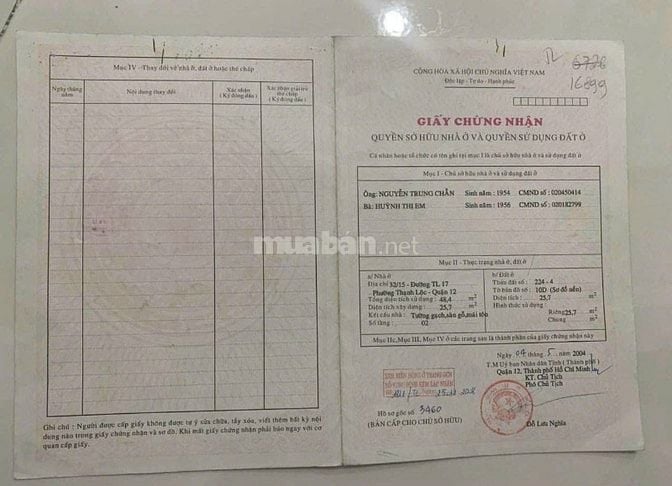 Mục IV - Thay đổi về nhà ở, đất ở hoặc thế chấp
Ngày tháng năm
Nội dung thay đổi
Xác nhận (Ký đóng dấu)
Xác nhận giải trừ thế chấp (Ký đóng dấu)
Ghi chú : Người được cấp giấy không được tự ý sửa chữa, tẩy xóa, viết thêm bất kỳ nội
dung nào trong giấy chứng nhận và sơ đồ. Khi mất giấy chứng nhận phải báo ngay với cơ
quan cấp giấy.
6776
16899
CỘNG HÒA XÃ HỘI CHỦ NGHĨA VIỆT NAM
Độc lập - Tự do - Hạnh phúc
GIẤY CHỨNG NHẬN
QUYỀN SỞ HỮU NHÀ Ở VÀ QUYỀN SỬ DỤNG ĐẤT Ở
Cá nhân hoặc tổ chức có tên ghi tại mục I là chủ sở hữu nhà ở và sử dụng đất ở
Mục I - Chủ sở hữu nhà ở và sử dụng đất ở
Ông: NGUYỄN TRUNG CHẮN Sinh năm : 1954 CMND số : 020450414
Bà: HUỲNH THỊ EM Sinh năm : 1956 CMND số : 020182799
muabán.net
Mục II - Thực trạng nhà ở, đất ở
a/ Nhà ở
Địa chỉ 32/15 - Đường TL 17
Phường Thạnh Lộc - Quận 12
Tổng diện tích sử dụng : 48,4 m²
Diện tích xây dựng : 25,7 m²
Kết cấu nhà : Tường gạch, sàn gỗ, mái tôn
Số tầng : 02
b/ Đất ở
Thửa đất số : 224 - 4
Tờ bản đồ số : 10D (Sơ đồ nền)
Diện tích : 25,7 m²
Hình thức sử dụng :
Riêng 25,7 m²
Chung m²
Mục IIc, Mục III, Mục IV ở các trang sau là thành phần của giấy chứng nhận này
Ngày 04 tháng 5 năm 2004
T.M Uỷ ban Nhân dân Tỉnh (Thành phố)
Quận 12, Thành phố Hồ Chí Minh
KT. Chủ Tịch
Phó Chủ Tịch
Hồ sơ gốc số 3460
(BẢN CẤP CHO CHỦ SỞ HỮU)
Đỗ Lưu Nghĩa